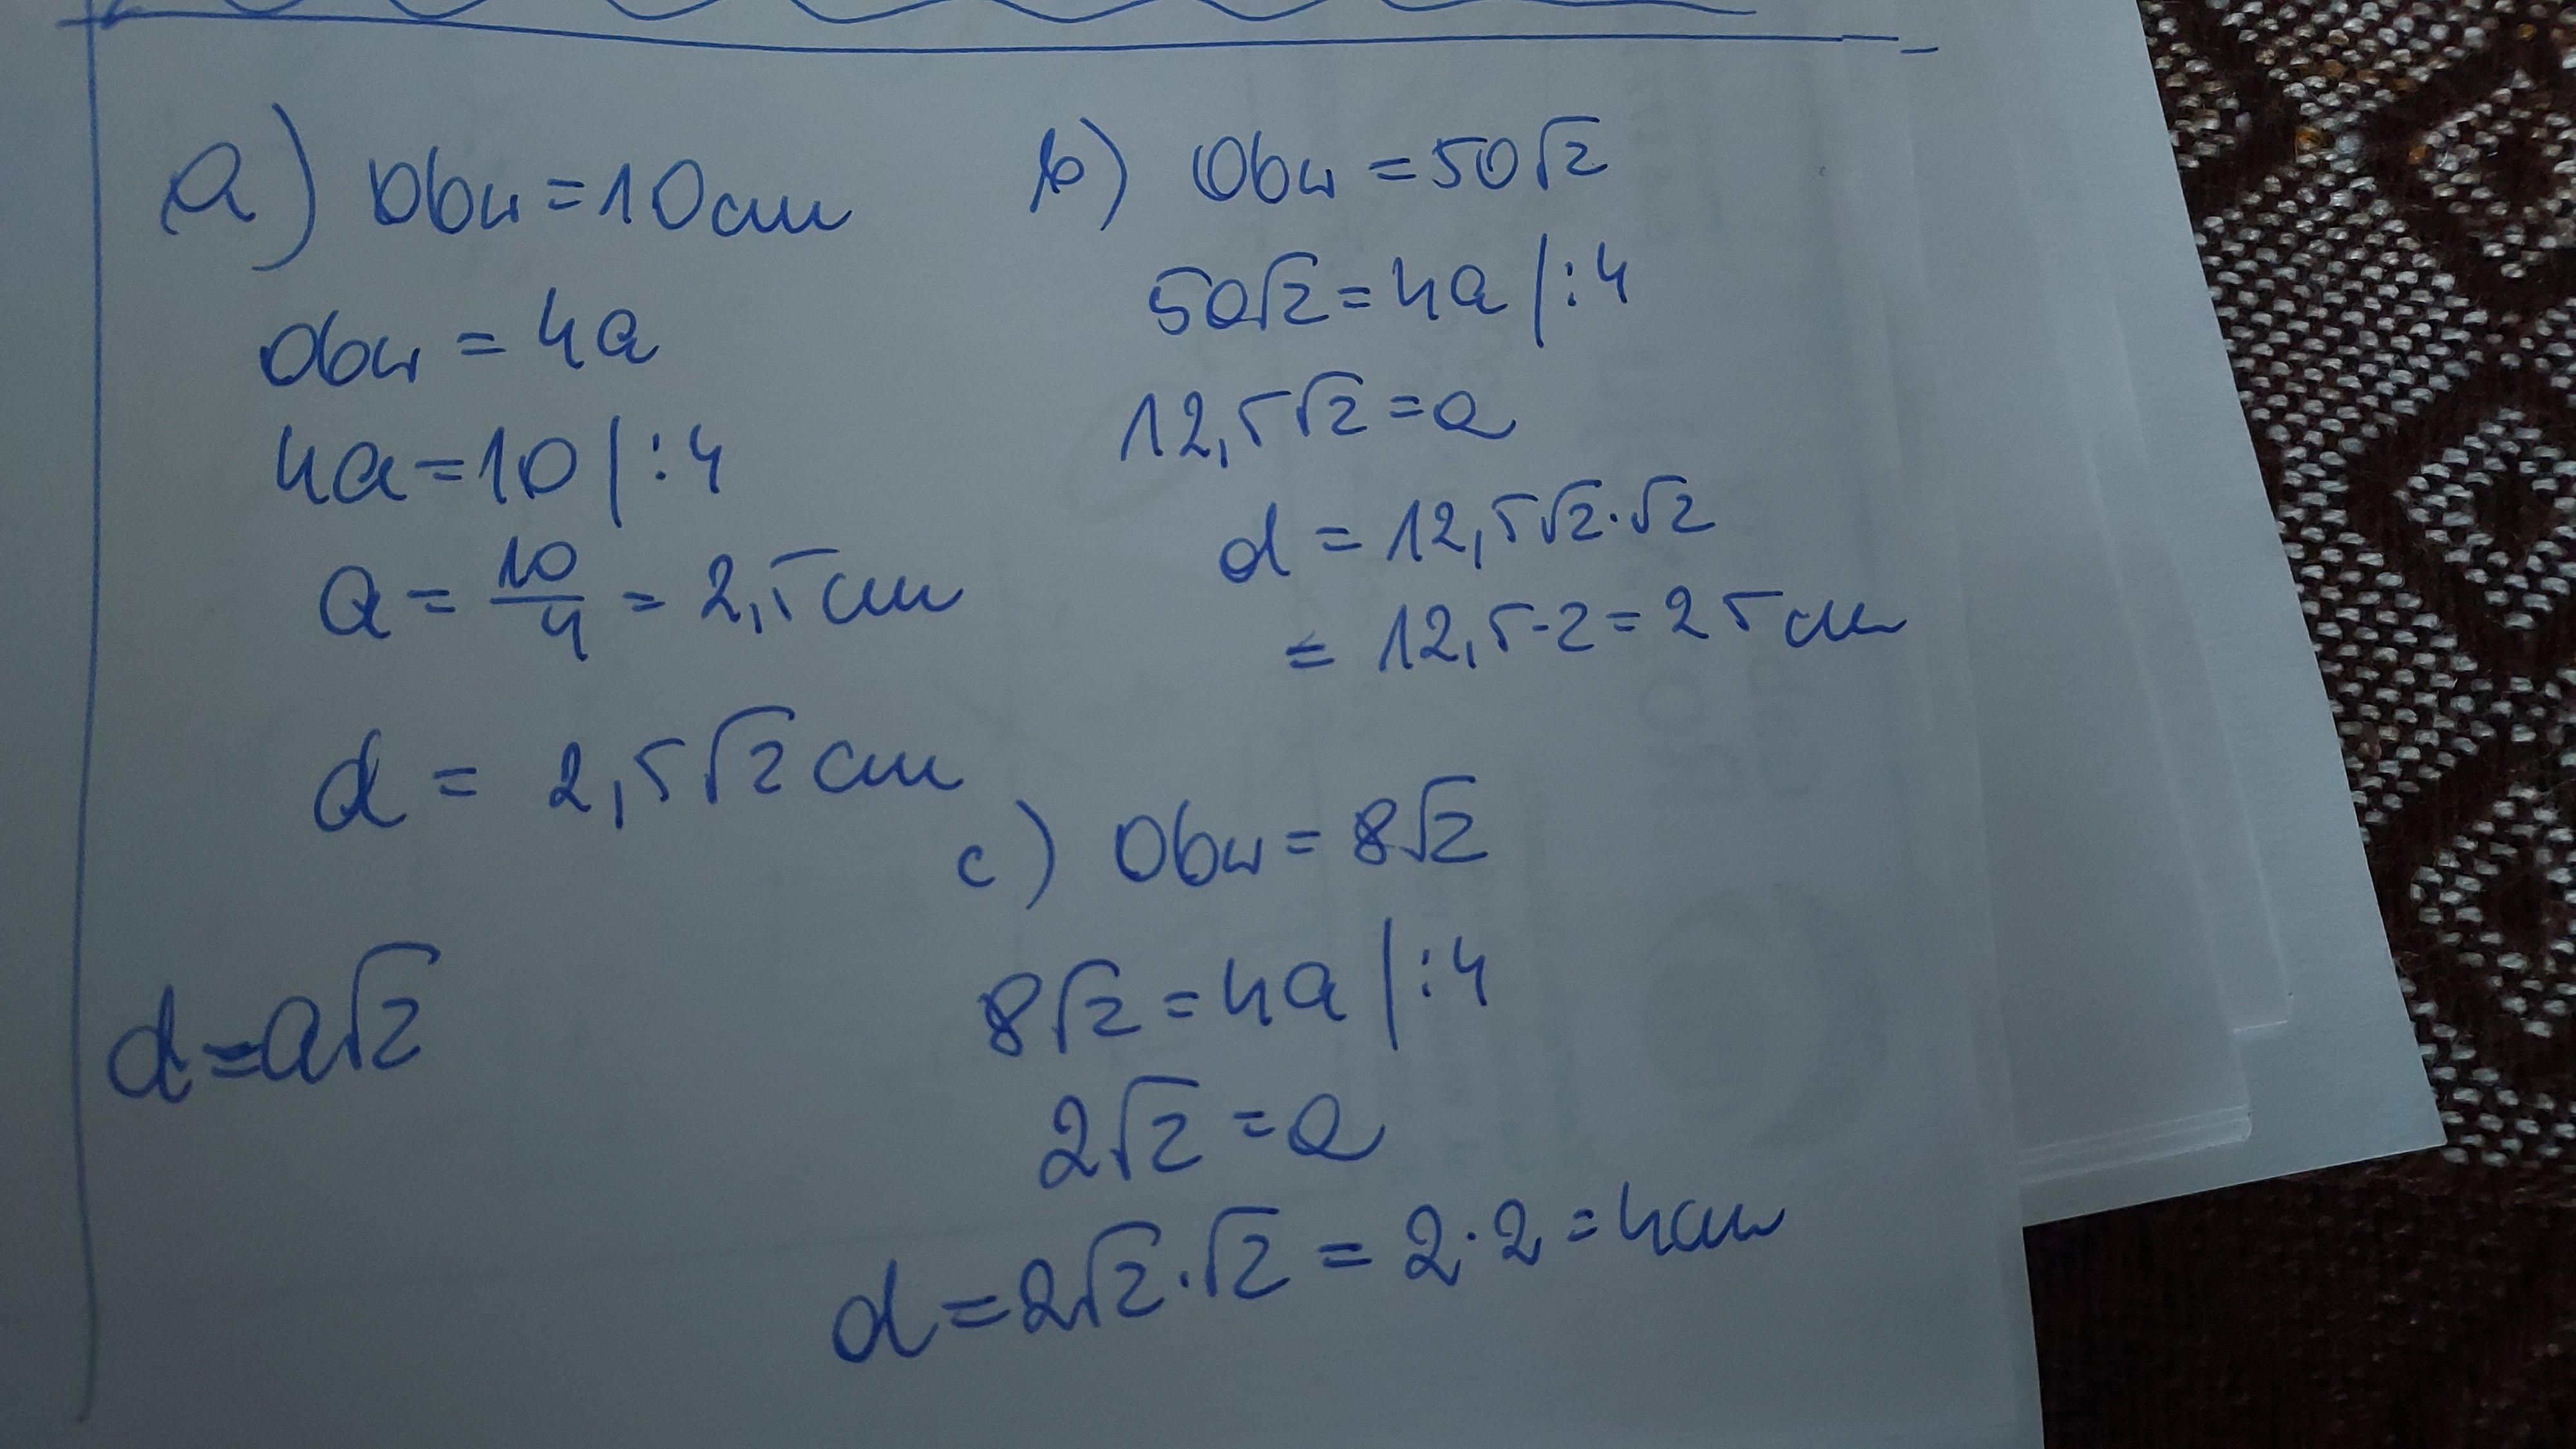 a) Obw = 10cm
Obw = 4a
4a = 10 |:4
a = 10/4 = 2,5cm
d = 2,5√2 cm
d = a√2
b) Obw = 50√2
50√2 = 4a |:4
12,5√2 = a
d = 12,5√2·√2
= 12,5·2 = 25cm
c) Obw = 8√2
8√2 = 4a |:4
2√2 = a
d = 2√2·√2 = 2·2 = 4cm